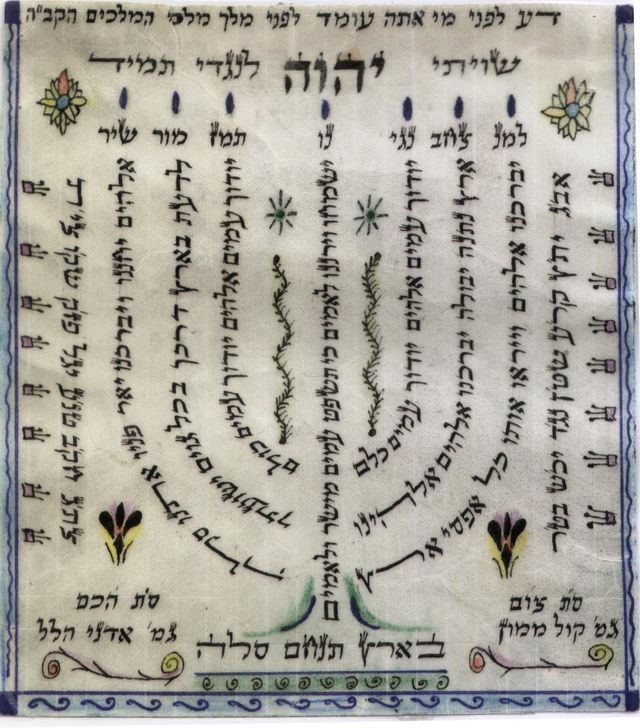 דע לפני מי אתה עומד לפני מלך מלכי המלכים הקב"ה
שויתי יהוה לנגדי תמיד
למנ צחב נגי נו תמז מור שיר
אבג יתץ קרע שטן נגד יכש בטר
יברכנו אלהים וייראו אותו כל אפסי ארץ
ארץ נתנה יבולה יברכנו אלהים אלהינו
יודוך עמים אלהים יודוך עמים כלם
ישמחו וירננו לאמים כי תשפט עמים מישר ולאמים
יודוך עמים אלהים יודוך עמים כולם
לדעת בארץ דרכך בכל גוים ישועתך
אלהים יחננו ויברכנו יאר פניו אתנו סלה
צתג חקב טנע יגל פזק שקו צית
סת צום
גמ' קול ממון
סת הכם
גמ' אדני הלל
בארץ תנחם סלה